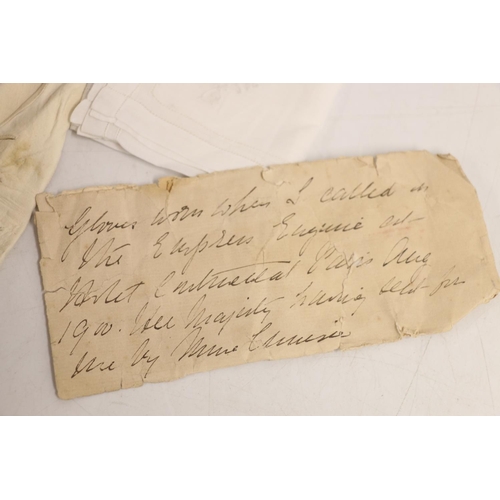 Gloves worn when I called on
the Empress Eugenie at
Hotel Continental Paris Aug
1900. Her Majesty having sent for
me by Mme